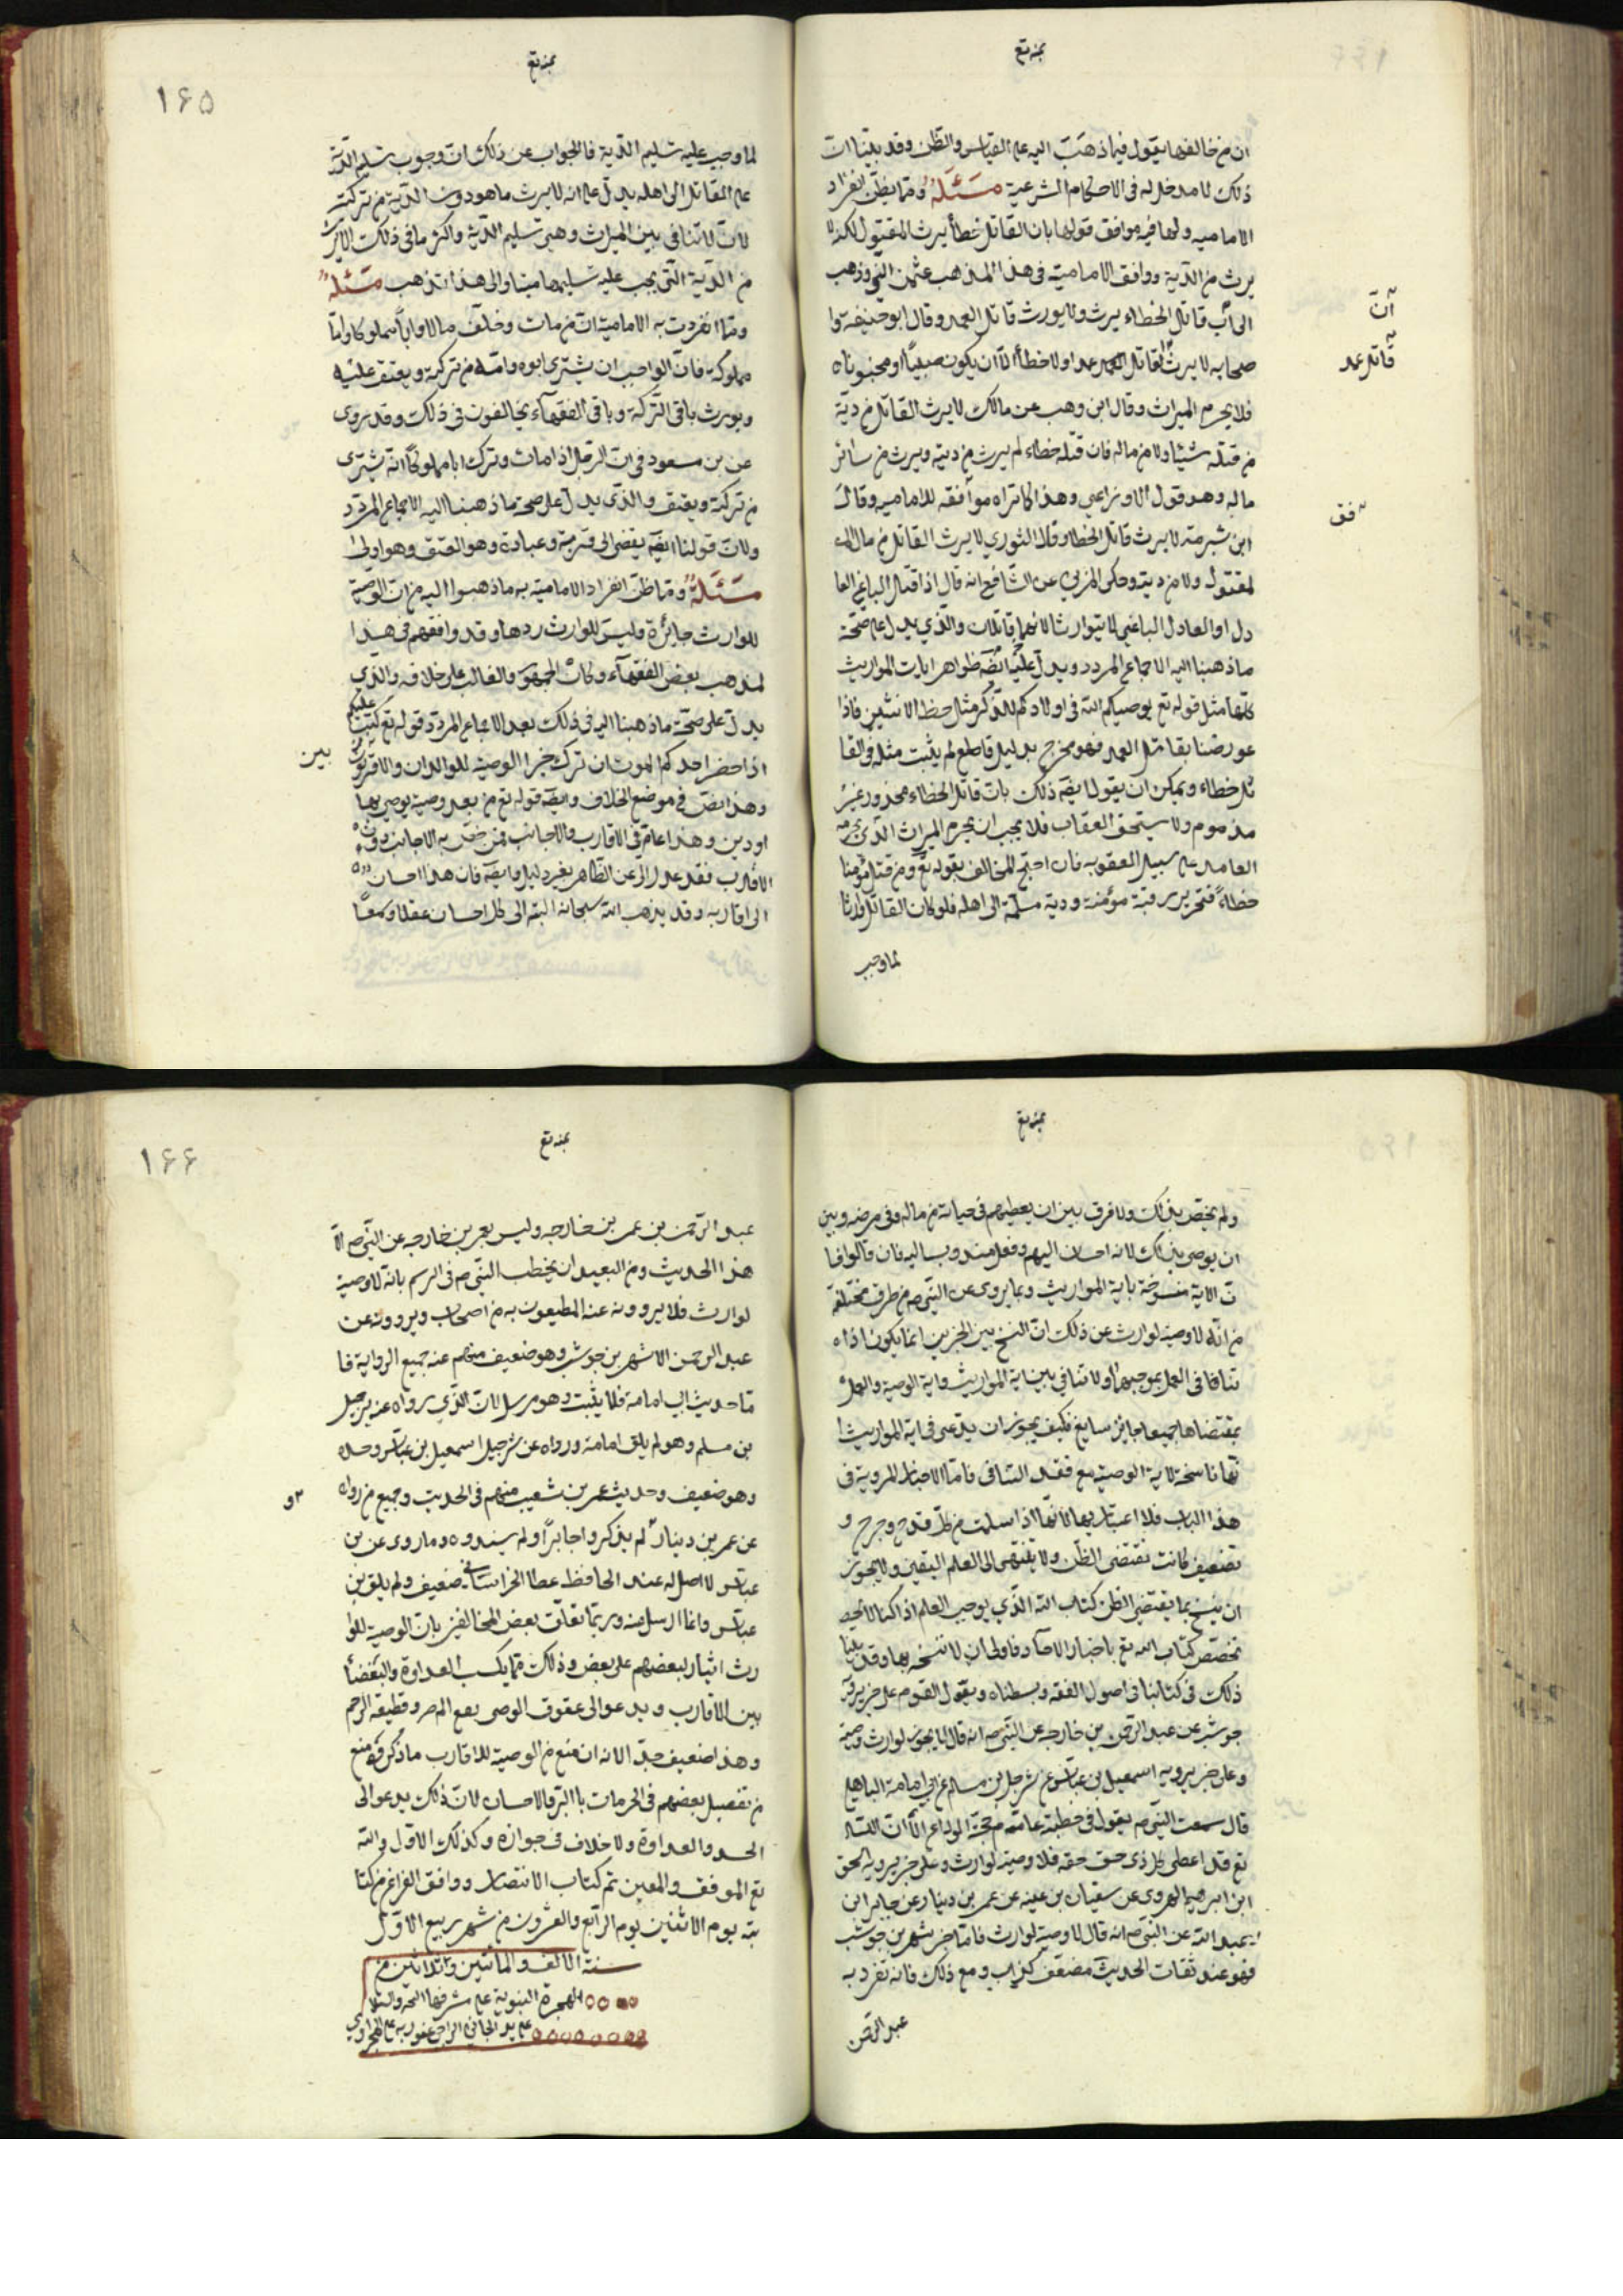 ان من خالفها يقول فيما ذهبت اليه على القياس والظن وقد بينا ان
ذلك لا مدخل له فى الاحكام الشرعية مسئلة ومما يظن انفراد
الاماميه ولها فيه موافق قولها بان القاتل خطأ يرث المقتول لكنه لا
يرث من الدية ووافق الامامية فى هذا المذهب عثمن البتى وذهب
الى ان قاتل الخطاء يرث ولا يورث قاتل العمد وقال ابو حنيفه وا
صحابه لا يرث القاتل عمدا ولا خطأ الا ان يكون صبيا او مجنونا
فلا يحرم الميراث وقال ابن وهب عن مالك لا يرث القاتل من دية
من قتله شيئا ولا من ماله فان قتله خطاء لم يرث من ديته ويرث من سائر
ماله وهو قول الاوزاعي وهذا كما تراه موافقه للاماميه وقال
ابن شبرمة لا يرث قاتل الخطاء وقال الثوري لا يرث القاتل من مال ا
لمقتول ولا من ديته وحكى المزني عن الشافعي انه قال اذا قتل الباغي العا
دل او العادل الباغي لا يتوارثا لانهما قاتلان والذي يدل على صحة
ما ذهبنا اليه الاجماع المردد ويدل عليه ايضه ظواهر ايات المواريث
كلها مثل قوله تع يوصيكم الله فى اولادكم للذكر مثل حظ الانثيين فاذا
عورضنا بقاتل العمد فهو مخرج بدليل قاطع لم يثبت مثله فى القا
تل خطاء ويمكن ان يقول ايضه ذلك بان قاتل الخطاء معذور غير
مذموم ولا يستحق العقاب فلا يجب ان يحرم الميراث الذى يحرمه
العامد على سبيل العقوبه فان احتج المخالف بقوله تع ومن قتل مؤمنا
خطاء فتحرير رقبة مؤمنة ودية مسلمة الى اهله فلو كان القاتل وارثا
لما وجب
ان
قاتل عمد
فق
۱۶۵
لما وجب عليه تسليم الدية فالجواب عن ذلك ان وجوب تسليم الدية
على القاتل الى اهله يدل على انه لا يرث ما هو دون الدية من تركته
لان لا تنافى بين الميراث وهى تسليم الدية واكثر ما فى ذلك الا يرث
من الدية التى يجب عليه تسليمها ميتا والى هذا نذهب مسئلة
ومما انفردت به الامامية ان من مات وخلف مالا وابا مملوكا واما
مملوكة فان الواجب ان يشترى ابوه وامه من تركته ويعتق عليه
ويورث باقى التركة وباقى الفقهاء يخالفون فى ذلك وقد روى
عن بن مسعود فى ان الرجل اذا مات وترك ابا مملوكا انه يشترى
من تركته ويعتق والذى يدل على صحة ما ذهبنا اليه الاجماع المردد
ولان قولنا ايضه يفضى الى قربة وعبادة وهو العتق وهو اولى
مسئلة ومما ظن انفراد الامامية به ما ذهبوا اليه من ان الوصية
للوارث جايزة وليس للوارث ردها وقد وافقهم فى هذا
لمذهب بعض الفقهاء وكان الجمهور والغالب على خلافه والذي
يدل على صحة ما ذهبنا اليه فى ذلك بعد الاجماع المردد قوله تع كتب عليكم
اذا حضر احدكم الموت ان ترك خيرا الوصية للوالدان والاقربون
وهذا نص في موضع الخلاف وايضه قوله تع من بعد وصية يوصي بها
او دين وهذا عام في الاقارب والاجانب فمن خص به الاجانب دون
الاقارب فقد عدل عن الظاهر بغير دليل وايضه فان هذا احسان
الى اقاربه وقد يذهب الله سبحانه اليه الى كل احسان عقلا وسمعا
بين
ولم يخص بذلك ولا فرق بين ان يعطيهم فى حياته من ماله وفى مرضه وبين
ان يوصى بذلك لانه احسان اليهم وفعل مندوب اليه فان قالوا فا
ن الاية منسوخة باية المواريث وبما يروى عن النبى ص من طرق مختلفة
من انه لا وصية لوارث عن ذلك ان النسخ بين الخبرين انما يكون اذا
تنافا فى العمل بموجبهما ولا تنافي بين اية المواريث واية الوصية والعمل
بمقتضاها جميعا جايز سايغ فكيف يجوز ان يدعى فى اية المواريث ا
نها ناسخة لاية الوصية مع فقد التنافى فاما الاخبار المروية فى
هذا الباب فلا اعتبار بها لانها اذا سلمت من كل قدح وجرح و
تضعيف كانت تقتضى الظن ولا تنتهى الى العلم اليقين ولا يجوز
ان ينسخ بما يقتضى الظن كتاب الله الذي يوجب العلم اذا كنا لا نخص
نخصص كتاب الله تع باخبار الاحاد فاولى ان لا ننسخه بها وقد بينا
ذلك فى كتابنا فى اصول الفقه وبسطناه ويقول القوم على خبر يرويه
جوشب عن عبد الرحمن بن خارجه عن النبى ص انه قال لا يجوز لوارث وصية
وعلى خبر يرويه اسمعيل بن عياش عن شرجل بن مسلم عن ابي امامة الباهلي
قال سمعت النبى ص يقول فى خطبته عامة حجة الوداع الا ان الله
تع قد اعطى كل ذى حق حقه فلا وصية لوارث وعلى خبر يرويه اسحق
ابن ابرهيم الهروى عن سفيان بن عينه عن عمر بن دينار عن جابر ابن
عبد الله عن النبى ص انه قال لا وصية لوارث فاما خبر شهر بن جوشب
فهو عند ثقات الحديث مضعف كذاب ومع ذلك فانه تفرد به
عبد الرحمن
۱۶۶
عبد الرحمن بن عمر بن خارجه وليس بعمر بن خارجه عن النبى ص الا
هذا الحديث ومن البعيد ان يخطب النبى ص فى الرسم بانه لا وصية
لوارث فلا يروونه عنه المطيعون به من اصحاب ويروونه عن
عبد الرحمن الا شهر بن جوشب وهو ضعيف متهم عند جميع الرواية فا
ما حديث ابي امامة فلا يثبت وهو مرسل لان الذي رواه عنه شرجل
بن مسلم وهو لم يلق امامة ورواه عن شرجيل اسمعيل بن عياش وحده
وهو ضعيف وحديث عمر بن شعيب متهم فى الحديث وجميع من رواه
عن عمر بن دينار لم يذكروا جابرا ولم يسندوه وما روى عن بن
عباس لا اصل له عند الحافظ عطا الخراسانى ضعيف ولم يلق بن
عباس وانما ارسل منه وربما تعلق بعض المخالفين بان الوصية للوا
رث ايثار لبعضهم على بعض وذلك مما يكسب العداوة والبغضاء
بين الاقارب ويدعو الى عقوق الموصى وقطيعة الرحم
وهذا ضعيف جدا لانه ان منع من الوصية للاقارب ما ذكروه منع
من تفضيل بعضهم فى الحرمات باالبر والاحسان لان ذلك يدعو الى
الحسد والعداوة ولا خلاف فى جوازه وكذلك الاول والله
تع الموفق والمعين تم كتاب الانتصار ووافق الفراغ من كتا
بته يوم الاثنين يوم الرابع والعشرون من شهر ربيع الاول
سنة الالف والمأتين وثلاثين من
الهجرة النبوية على مشرفها
على يد الجانى الراجى عفو ربه